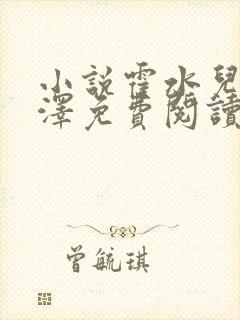 小說霍水兒
澤免費閱讀
曾毓琪